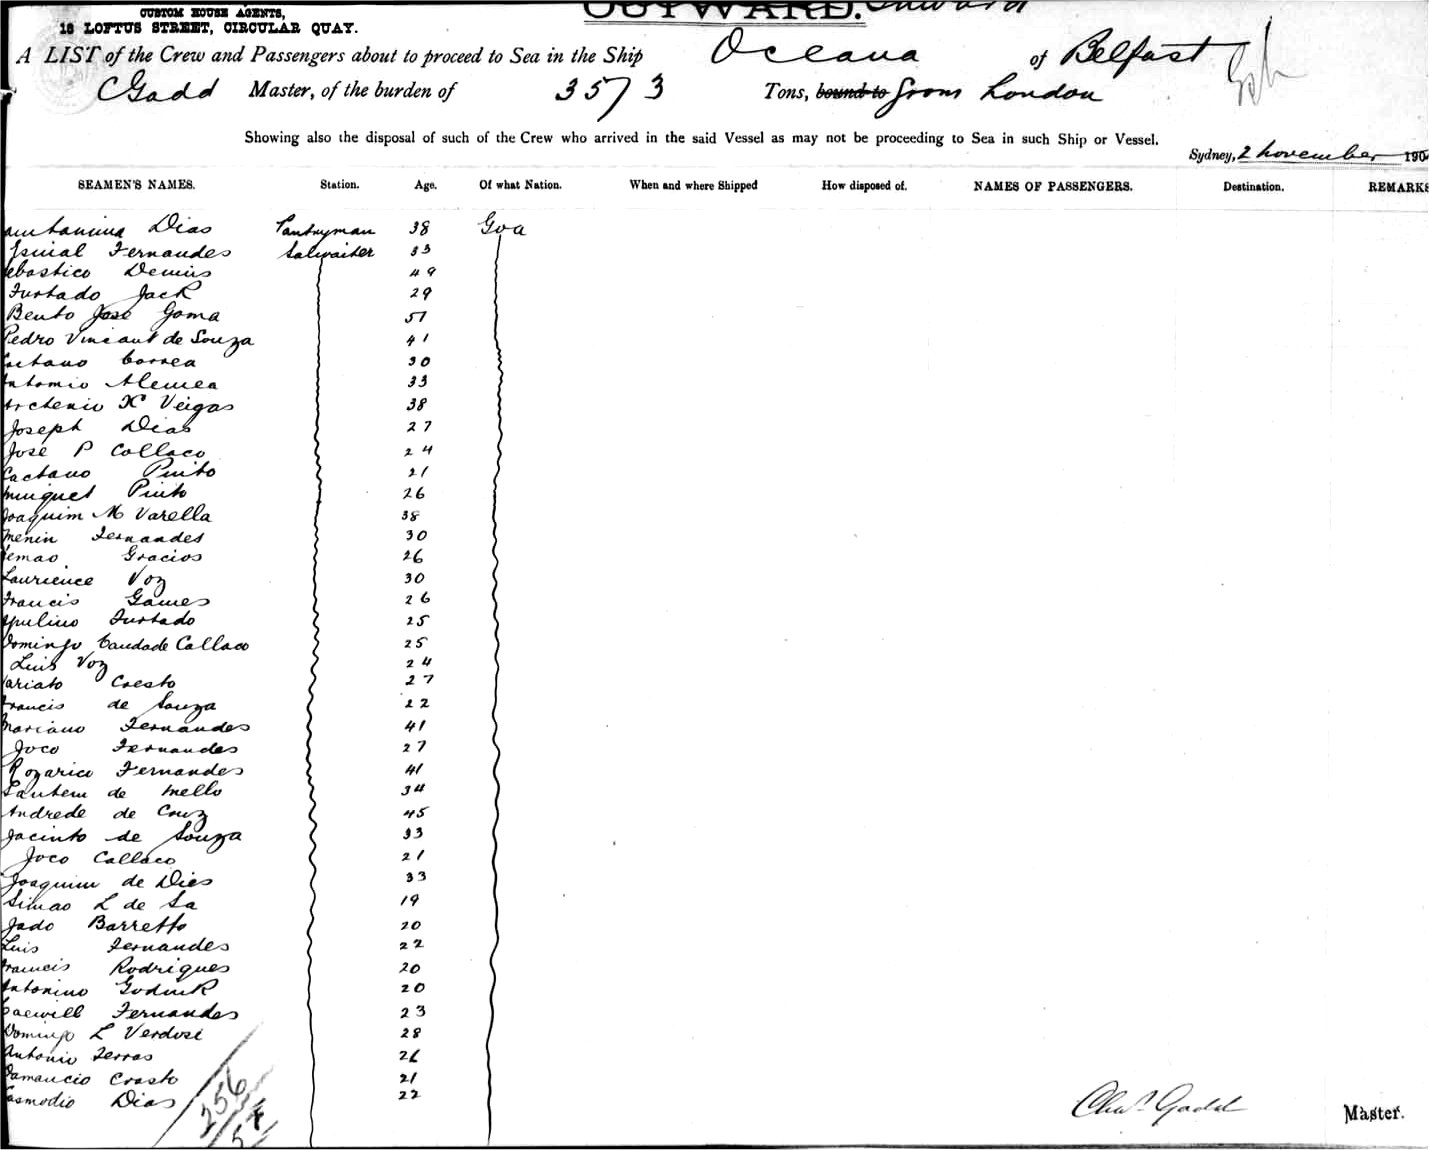 CUSTOM HOUSE AGENTS,
18 LOFTUS STREET, CIRCULAR QUAY.
OUTWARD. Inward
A LIST of the Crew and Passengers about to proceed to Sea in the Ship Oceana of Belfast
C Gadd Master, of the burden of 3573 Tons, bound to from London
Showing also the disposal of such of the Crew who arrived in the said Vessel as may not be proceeding to Sea in such Ship or Vessel.
Sydney, 2 November 190
SEAMEN'S NAMES. Station. Age. Of what Nation. When and where Shipped How disposed of. NAMES OF PASSENGERS. Destination. REMARKS
Dias Pantryman 38 Goa
Fernandes Salwaiter 33
ebastico Demins 49
Furtado Jack 29
Bento José Goma 51
Pedro Vincent de Souza 41
aetano Correa 30
ntomio Alemea 33
X Veigas 38
Joseph Dias 27
José P Collaco 24
Caetano Pinto 21
Pinto 26
Joaquim M Varella 38
menin Fernandes 30
emao Gracios 26
Laurience Voz 30
Francis Gomes 26
Furtado 25
Domingo Caudade Collaco 25
Luis Voz 24
ariato Coesto 27
Francis de Souza 22
Mariano Fernandes 41
Joco Fernandes 27
Rozario Fernandes 41
de Mello 34
Andrede de Cruz 45
Jacinto de Souza 33
Joco Callaco 21
Joaquim de Dies 33
Simao L de Sa 19
Jado Barretto 20
Luis Fernandes 22
Francis Rodrigues 20
Antonino 20
Fernandes 23
Domingo L Verdosi 28
Antonio Ferras 26
amaucio Crasto 21
asmodio Dias 22
256
57
Chas Gadd Master.